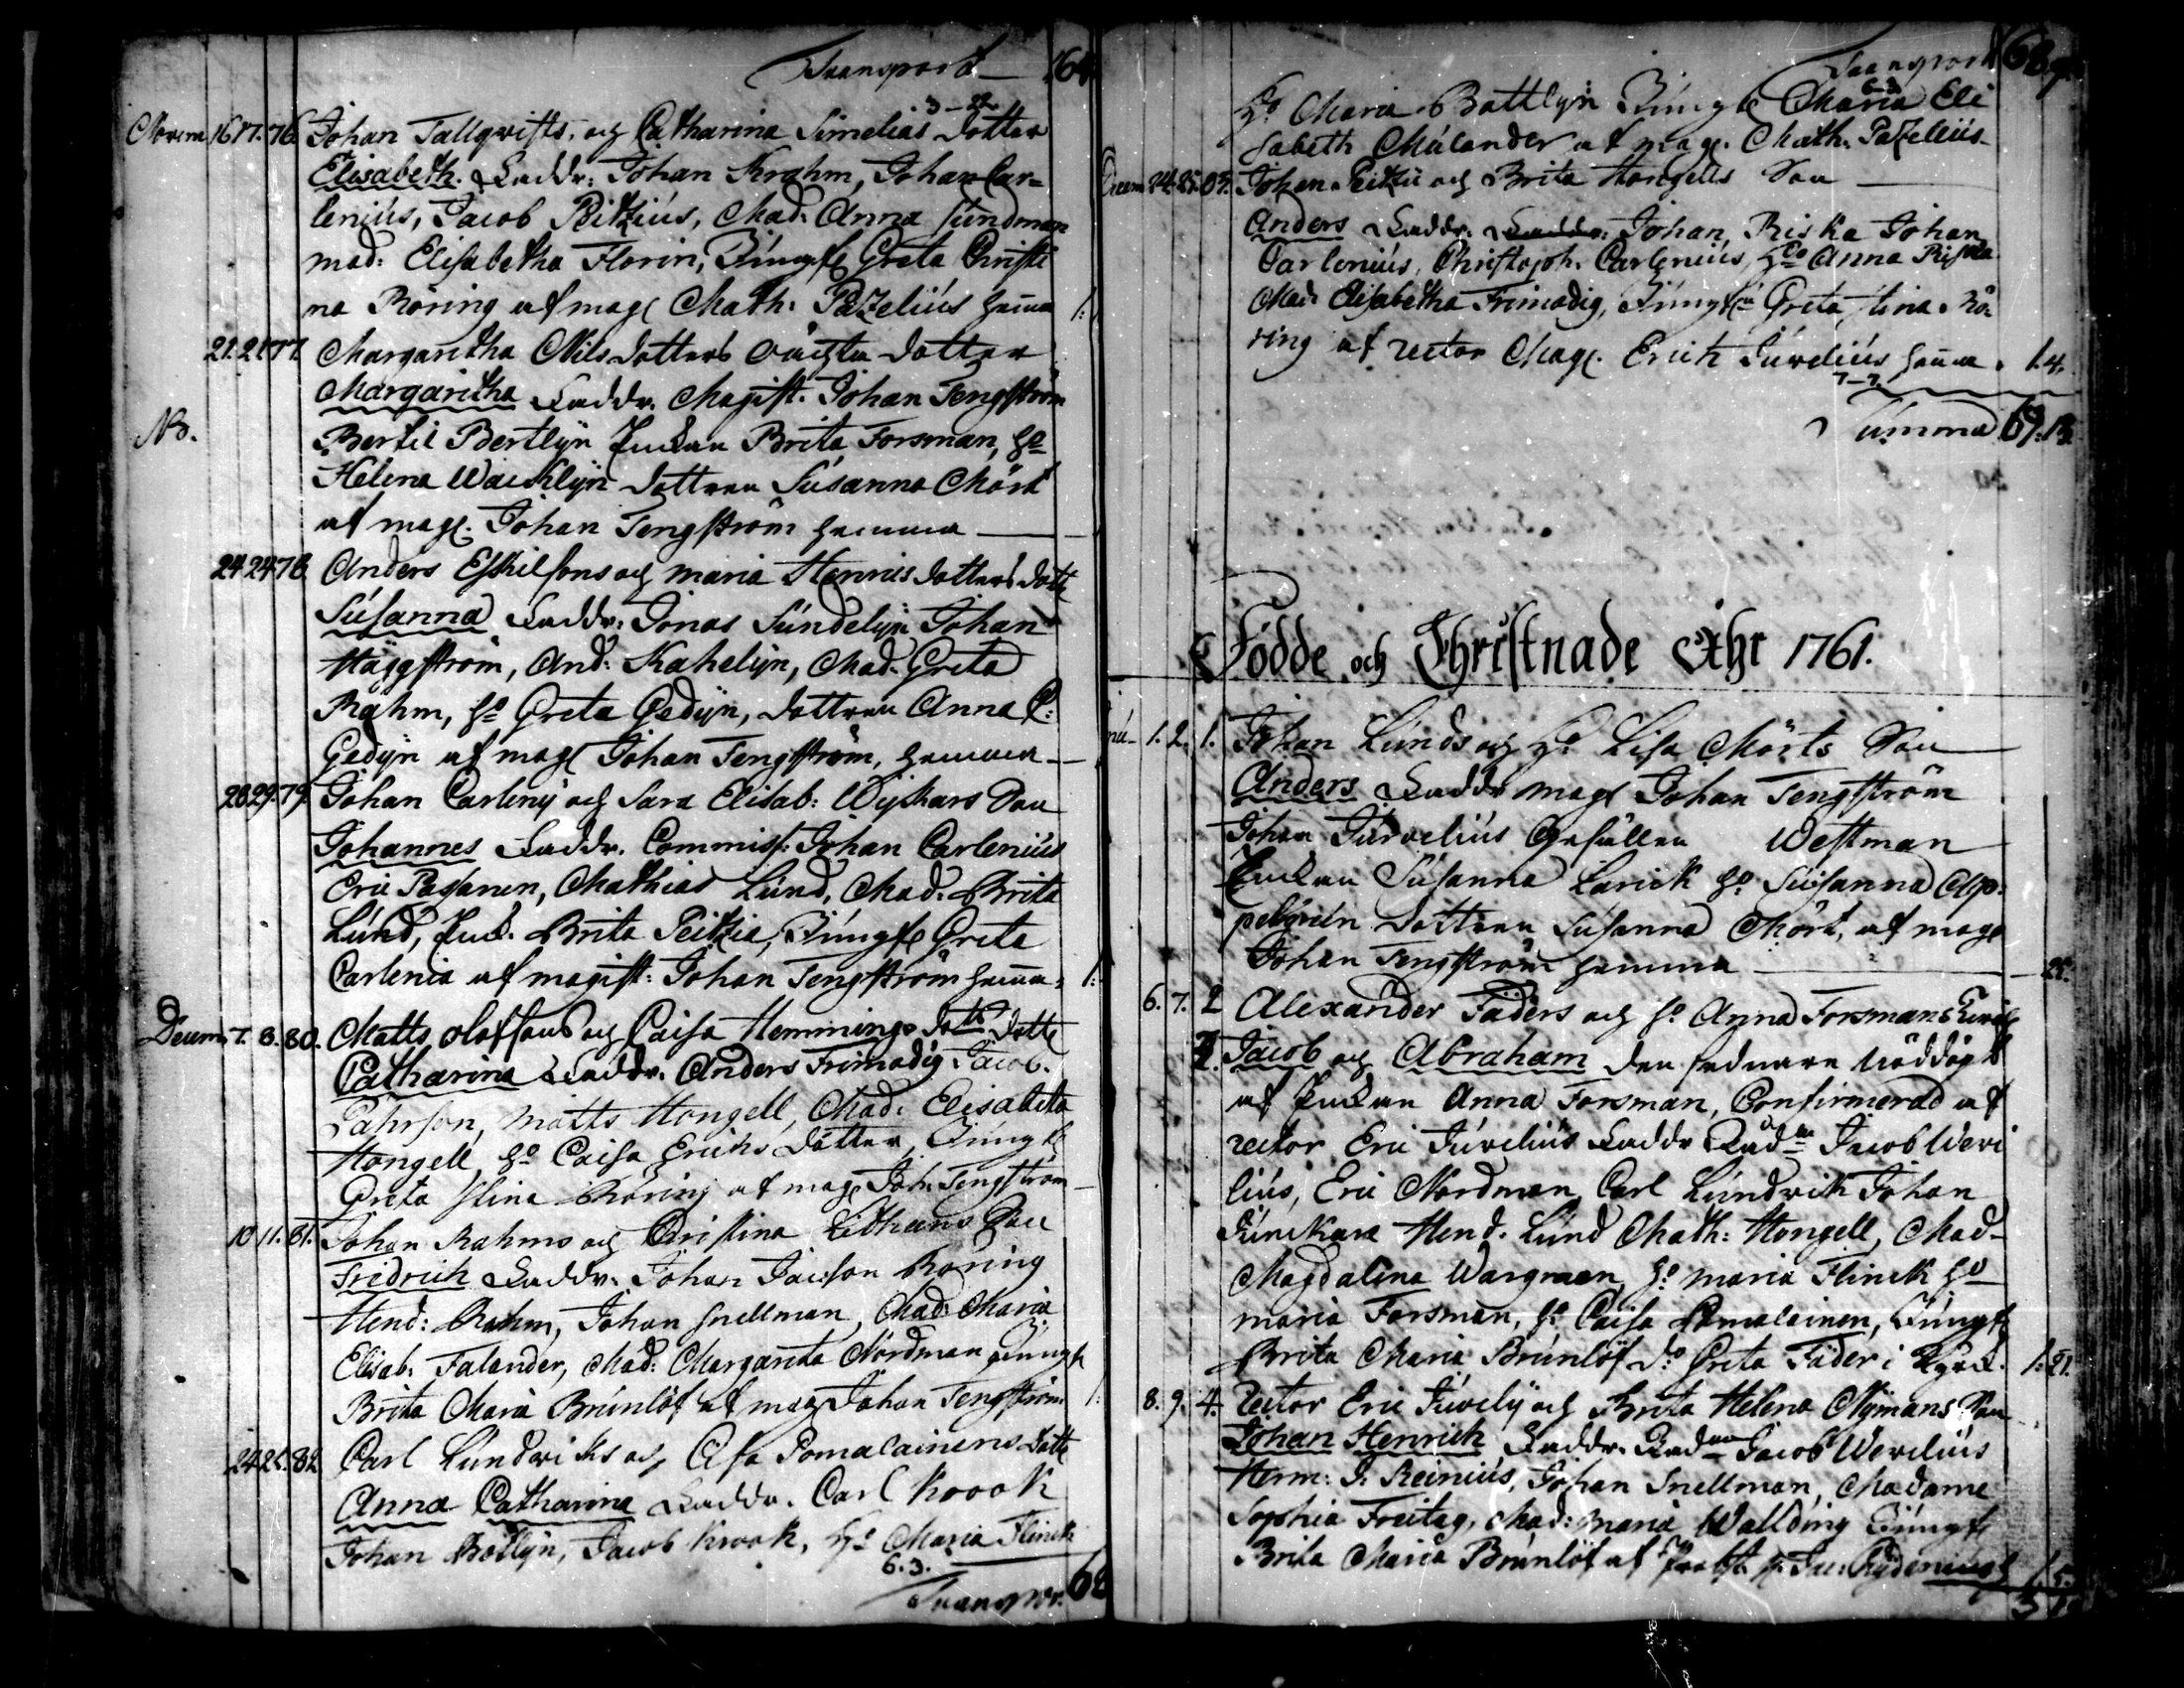 Transport 164
3-22
Novem 16 17. 76. Johan Tallqvists, och Catharina Simelias Dotter
Elisabeth. Faddr: Johan Krahm, Johan Car-
lenius, Jacob Peitzius, Mad: Anna Sundman
mad: Elisabetha Florin, Jungfr Greta Christi
na Röring af mag Math: Pazelius hemma 1:
21. 21. 77. Margaretha Nils dotters oächta dotter
Margaretha Faddr. Magist. Johan Tengström
NB. Bertil Bertlyn Enkan Brita Forsman, ho
Helena Wacklyn dottren Susanna Mört
af mag. Johan Tengström hemma
24 24 78. Anders Eskilsons och maria Hennis dotters dott
Susanna Faddr: Jonas Sundelyn Johan
Häggström, And: Kahelyn, Mad. Greta
Rahm, ho Greta Gedyn, dottren Anna C:
Gedyn af mag Johan Tengström, hemma
28 29. 79. Johan Carleny och Sara Elisab: Wijkars Son
Johannes Faddr. Commiss: Johan Carlenius
Eric Passanen, Mathias Lund, Mad. Brita
Lund, Enk. Brita Peitzia, Jungfr Greta
Carlenia af magist: Johan Tengström hemma 1:
Decem 7. 8. 80. Matts Olofsons och Caisa Hemmings dotts dotte
Catharina Faddr. Anders Frimodig Jacob
Pahrson, Matts Hongell, Mad: Elisabeta
Hongell, ho Caisa Erichs dotter, Jungfr
Greta Stina Röring af mag Joh: Tengström
10 11. 81. Johan Rahms och Christina Lithens Son
Fridrich Faddr. Johan Jacson Röring
Hend: Rahm, Johan Snellman, Mad: Maria
Elisab. Falander, Mad: Margareta Nordman Jungfr
Brita Maria Brunlöf af mag Johan Tengström 1:
24 25. 82 Carl Lundwichs och Lisa Pomalainens Dotte
Anna Catharina Faddr. Carl Krook
Johan Bötlyn, Jacob Krook, Ho Maria Flinck
6. 3.
Transpor. 68
Transport 68
Ho Maria Battlyn Jungfr Maria Eli
sabeth Mulander af mag. Math: Pazelius
Decem 24. 25. 83. Johan Peitzii och Brita Hongells Son
Anders Faddr. Johan Riska Johan
Carlenius, Christoph. Carlenius, Ho Anna Riska
Mad: Elisabetha Frimodig, Jungfr Greta Stina Rö-
ring af rector Mag. Erich Juvelius hemma 1.4.
7-7.
Summa 69:13
Födde och Christnade Ahr 1761.
1. 2. 1. Johan Lunds och Ho Lisa Mörts Son
Anders Faddr mag Johan Tengström
Johan Juvelius Gesällen Westman
Enkan Susanna Larick ho Susanna Ap-
pelgren dottren Susanna Mört, af mag
Johan Tengström hemma 25.
6. 7. 2 Alexander Fäders och ho Anna Forsmans Twill
3. Jacob och Abraham den sednare nöddöpt
af Enkan Anna Forsman, Confirmerad af
rector Eric Juvelius Faddr Rådm Jacob Weri
lius, Eric Nordman, Carl Lundwich Johan
Junckara Hend. Lund Math: Hongell, Mad-
Magdalena Wargman, ho maria Flinck ho
maria Forsman, ho Caisa Pomalainen, Jungf
Brita Maria Brunlöf do Greta Fäder i Kyrk. 1:21.
8. 9. 4. Rector Eric Juvely och Brita Helena Nymans Son
Johan Henrich Faddr. Radman Jacob Werelius
Herm: J. Reinius, Johan Snellman, Madame
Sophia Freitag, Mad: maria Wallding Jungf
Brita Maria Brunlöf af Probst. Jac: Rydenius 1.5.